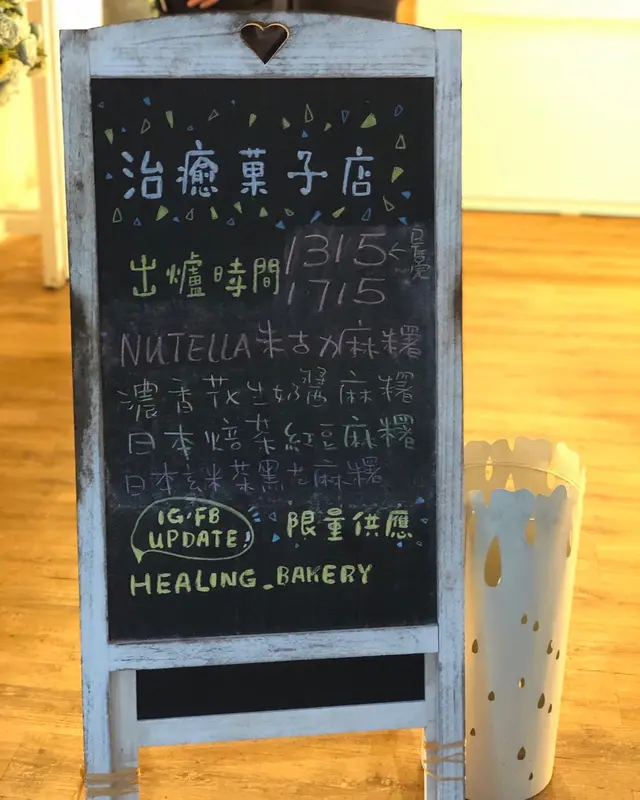 治癒菓子店
出爐時間 1315←
1715
NUTELLA朱古力麻糬
濃香花生奶醬麻糬
日本焙茶紅豆麻糬
日本玄米茶黑芝麻糬
IG/FB
UPDATE!
限量供應
HEALING_BAKERY